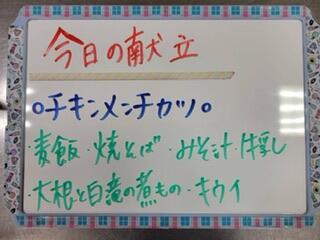 今日の献立
○チキンメンチカツ○
麦飯・焼そば・みそ汁・牛乳
大根と白滝の煮もの・キウイ